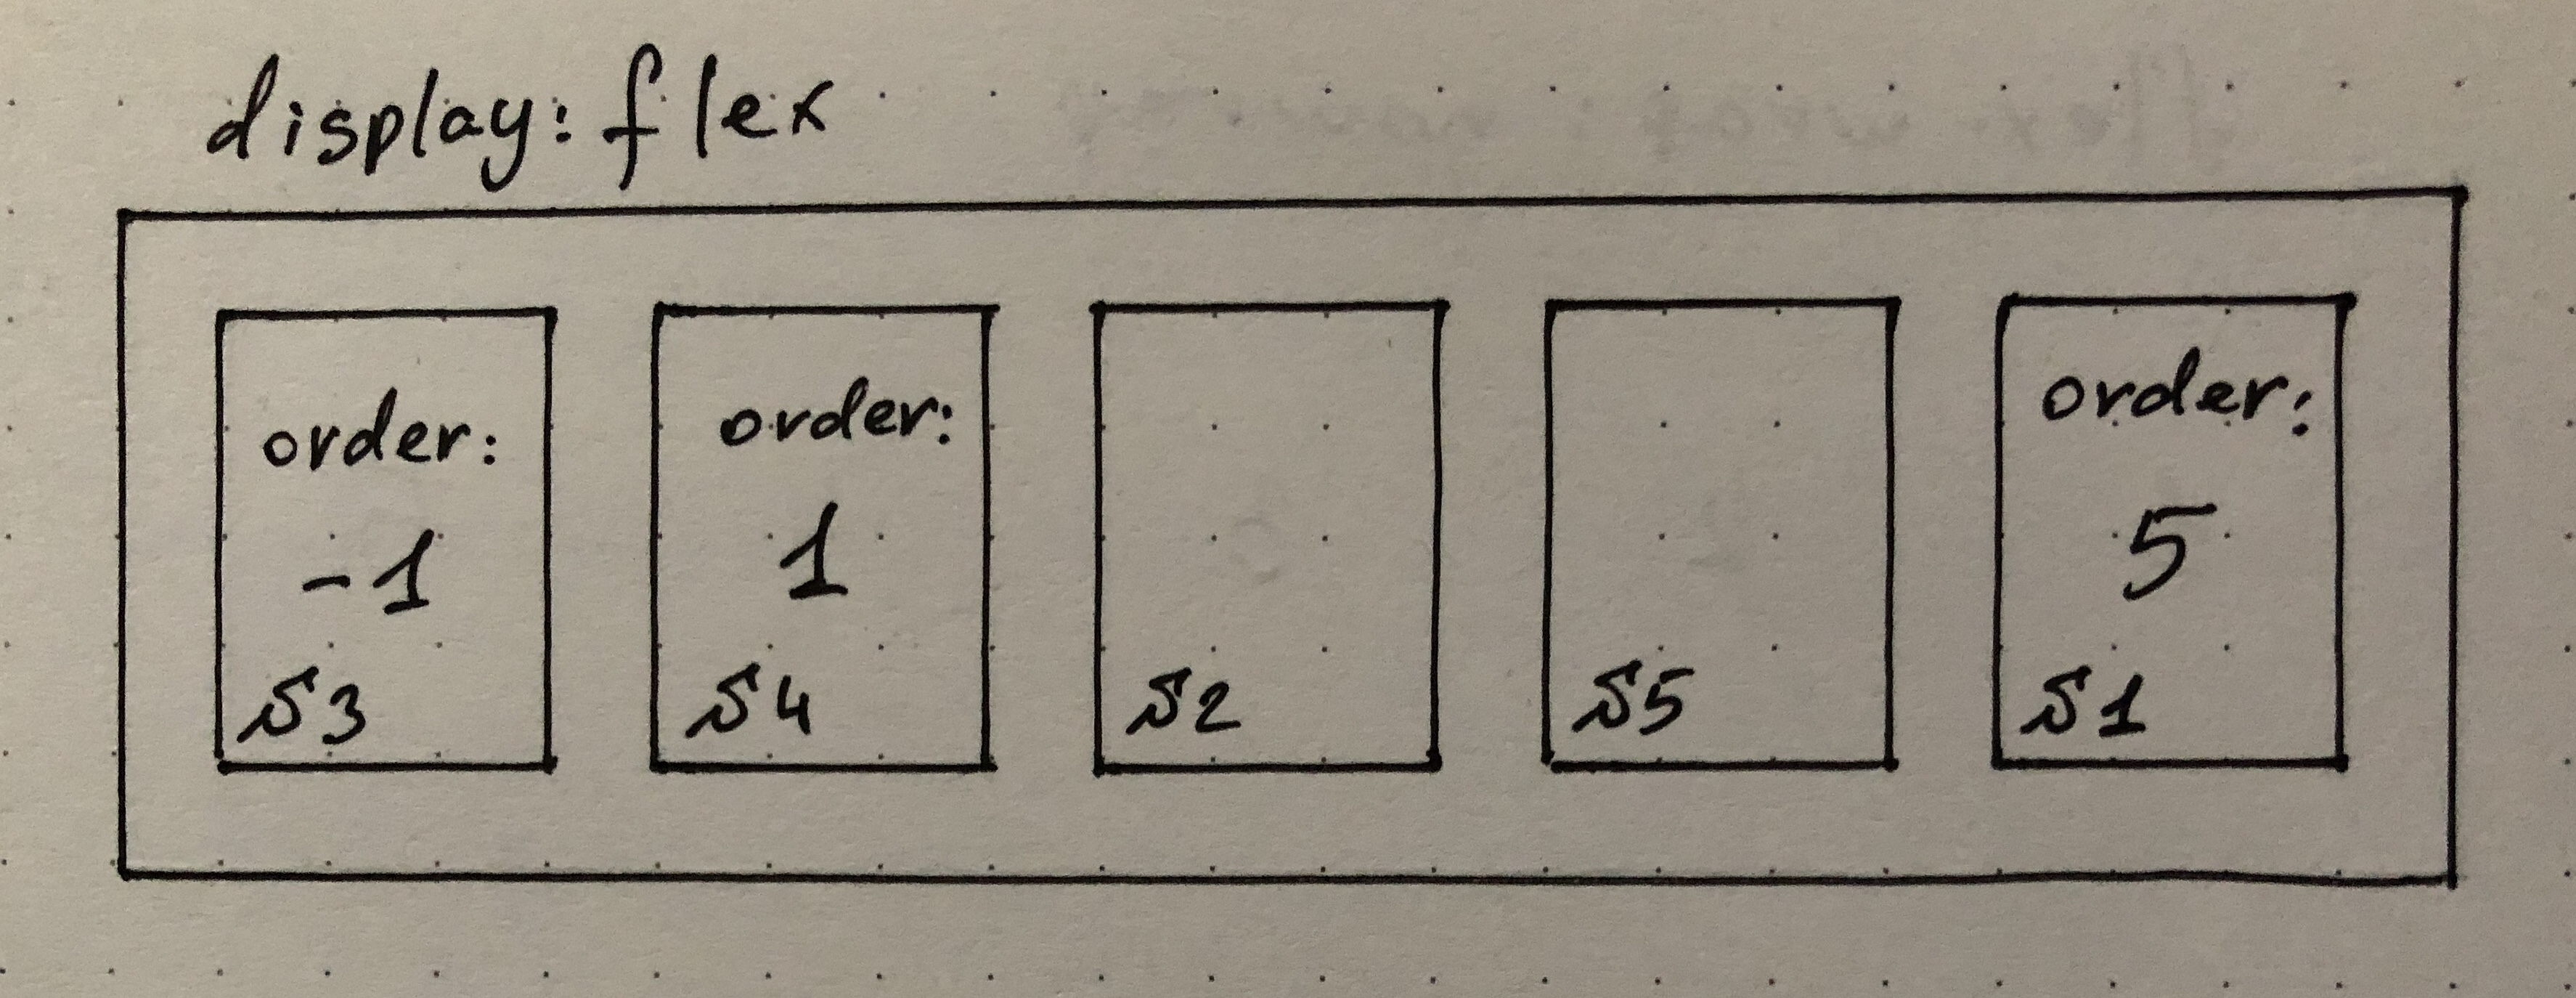 display: flex
order:
-1
S3
order:
1
S4
S2
S5
order:
5
S1